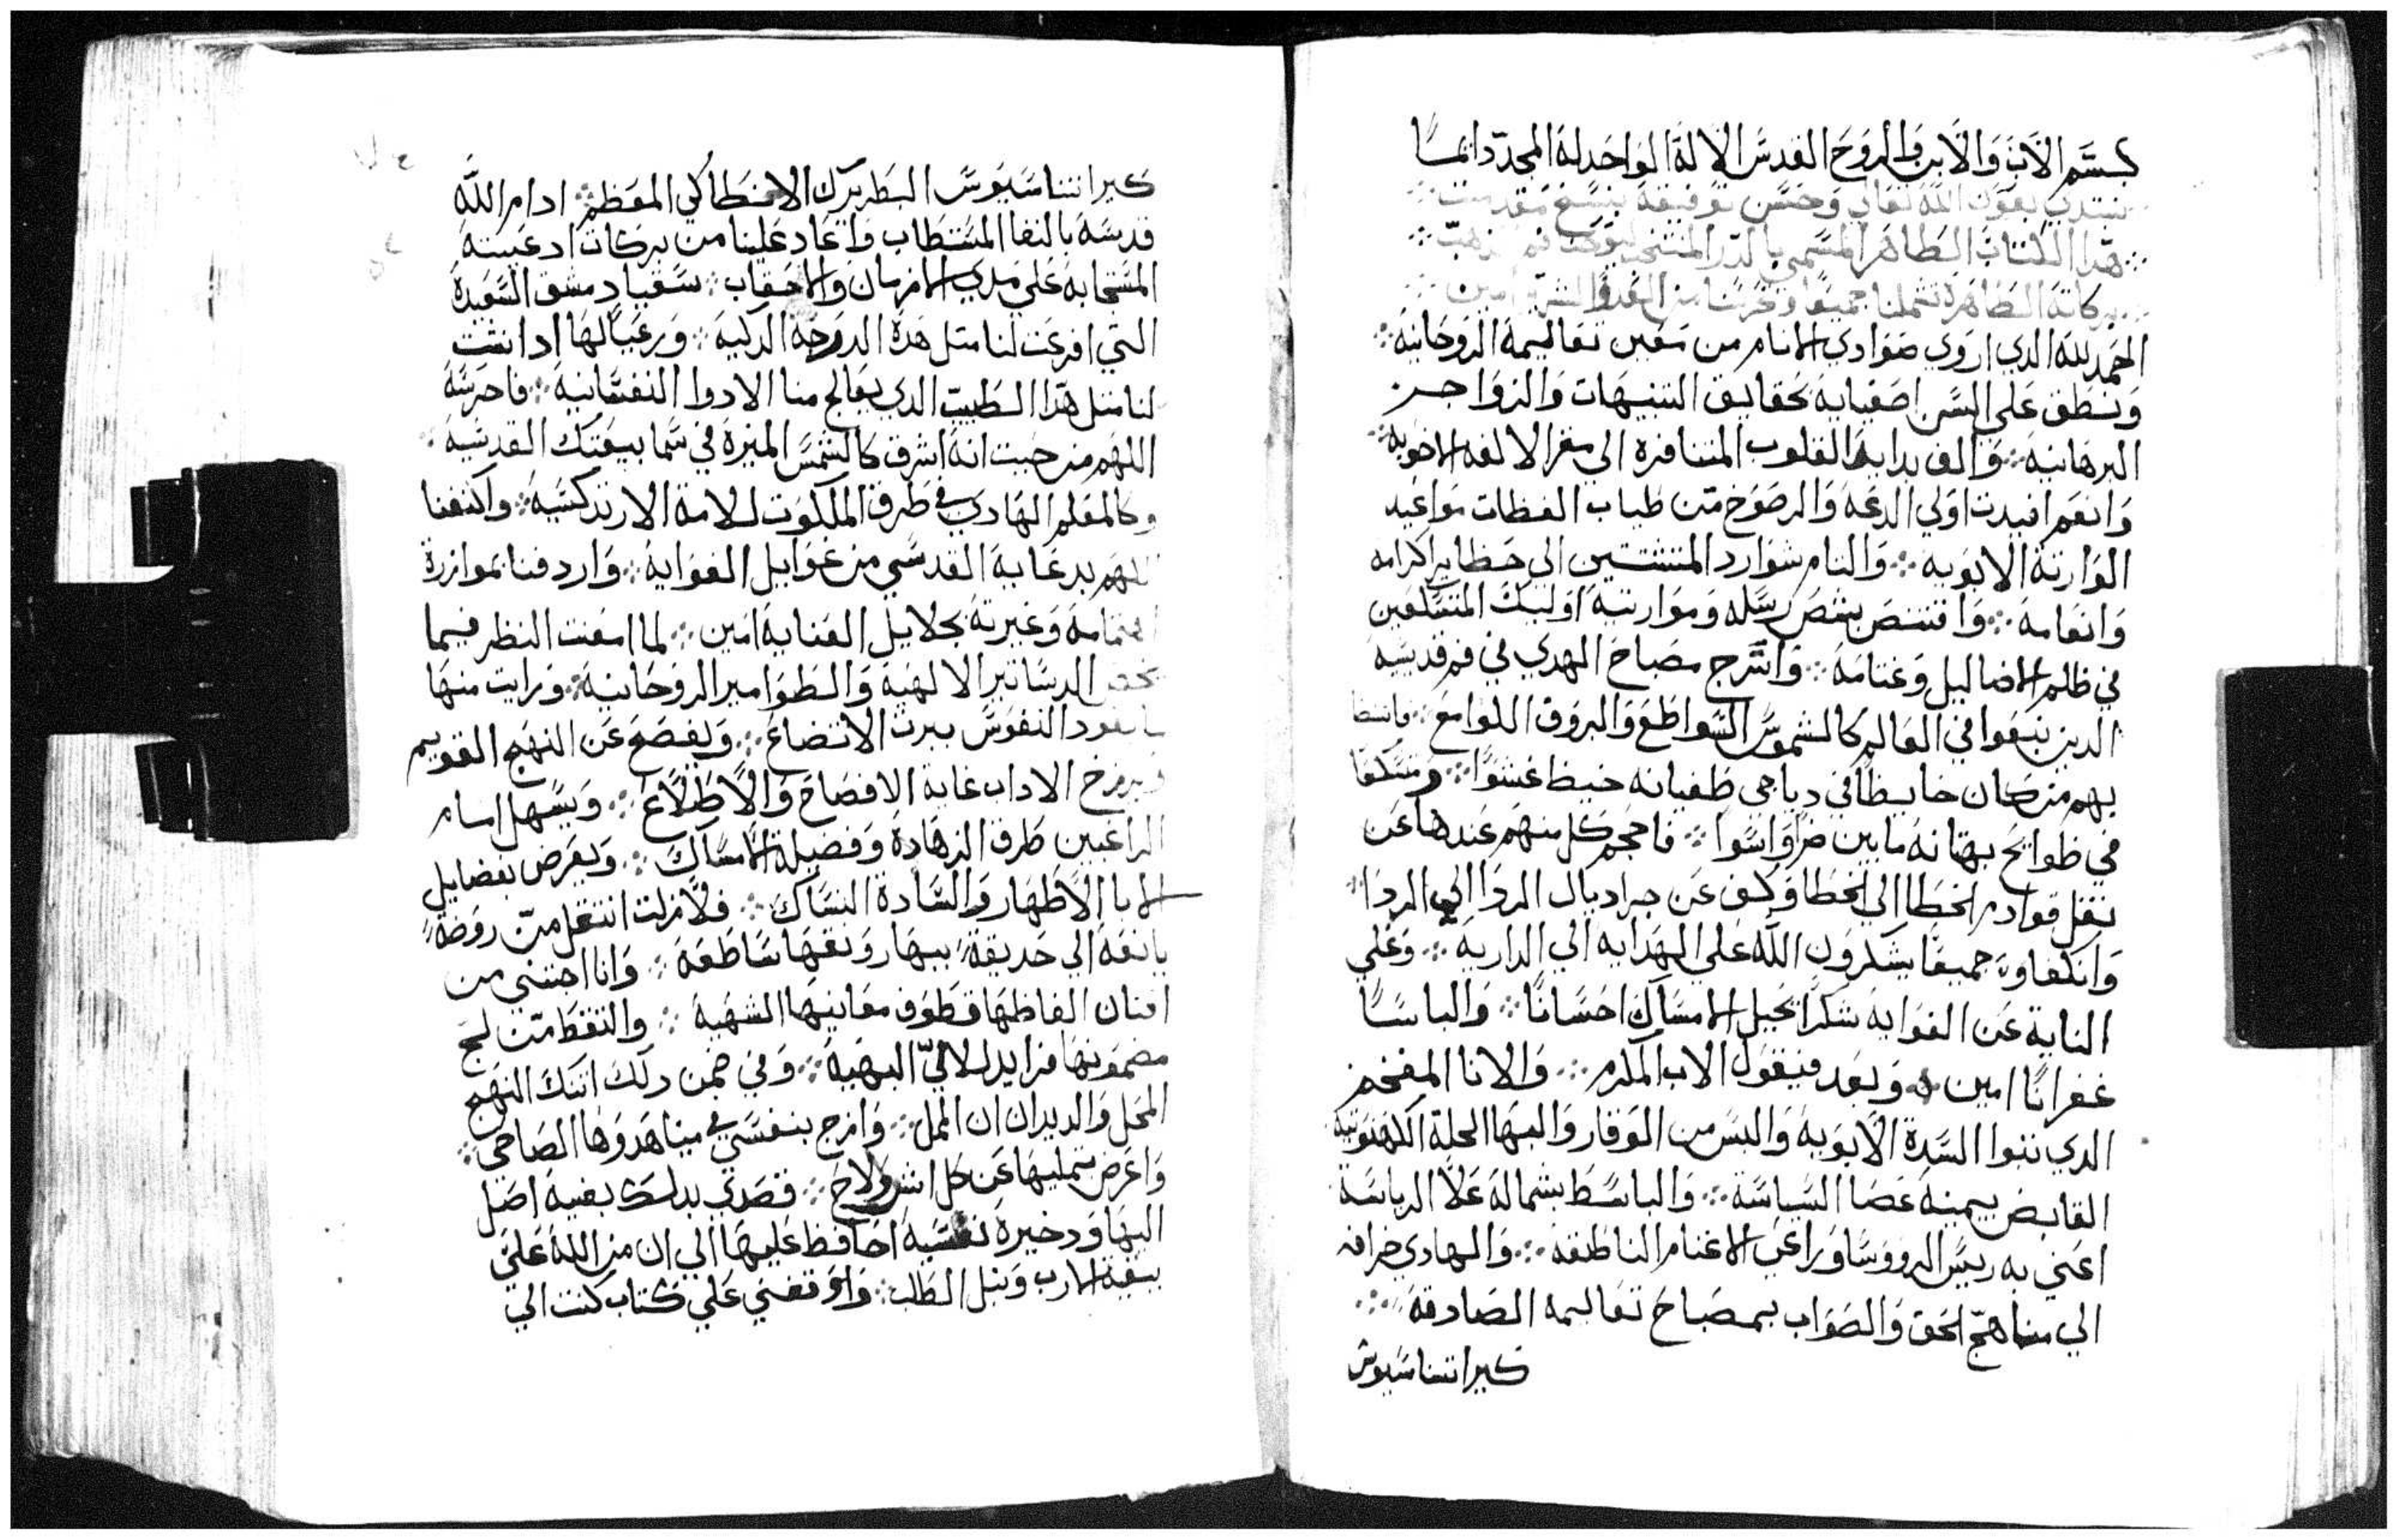 بسم الاب والابن والروح القدس الاله الواحد له المجد دايما
نبتدي بعون الله تعالي وحسن توفيقه بنسخ مقدمت
هدا الكتاب الطاهر المسمي بالدر المنتخب ليوحنا فم الدهب
بركاته الطاهره تشملنا جميعا وتحرسنا من العدو الشرير امين
الحمد لله الدي اروي صوادي الانام من معين تعاليمه الروحانيه
ونطق علي السن اصفيايه بحقايق التنبيهات والزواجر
البرهانيه والف بدايه القلوب المتنافره الي مقر الالفه الاخويه
وانعم افيدت اولي الدعه والرضوخ من طياب العظات مواعيد
الوارثة الابويه والنام شوارد المتشتتين الي حظاير اكرامه
وانعامه واقتنص بشص رسله وموارثته اوليك المتسكعين
في ظلم الاضاليل وغتامه واسرج مصباح الهدي في فم قديسيه
الدين نبغوا في العالم كالشموس السواطع والبروق اللوامع
بهم من كان خابطا في دياجي طغيانه خبط عشوا ومتسكعا
في طوايح بهتانه ما بين ضرا واسوا فاحجم كل منهم عندها عن
نقل قوادم الخطا الي الخطا وكف عن جر اديال الردا الي الردا
وانكفاوا جميعا يشكرون الله علي الهدايه الي الداريه وعلي
الناية عن الغوايه شكرا بحيل الامساك احسانا والباسا
غفرانا امين وبعد فيقول الاب المكرم والانا المفخم
الدي تبوا السدة الابويه والبس من الوقار والبها الحلة الكهنوتيه
القابض بيمينه عصا السياسة والباسط بشماله علا الرياسة
اعني به ريس الرووسا وراعي الاغنام الناطقه والهادي خرافه
الي مناهج الحق والصواب بمصباح تعاليمه الصادقة
كيراتناسيوس
كيراتناسيوس البطريرك الانطاكي المعظم ادام الله
قدسه بالنفا المستطاب واعاد علينا من بركات ادعيته
المستجابه علي مدي الازمان والاحقاب سقيا دمشق السعيدة
التي افرعت لنا متل هده الدوحة الدكيه ورعيا لها اد انشت
لنا متل هدا الطبيب الدي يعالج منا الادوا النفسانيه فاحرسه
اللهم من حيت انه اشرق كالشمس المنيرة في سما بيعتك القدسيه
وكالمعلم الهادي في طرق الملكوت للامة الارتدكسيه واكنفنا
اللهم بدعايه القدسي من غوايل الغوايه واردفنا بموازرة
اهتمامه وغيرته بجلايل العنايه امين لما امعنت النظر فيما
يخص الدساتير الالهيه والطوامير الروحانيه ورايت منها
ما يقود النفوس ببرت الاتضاع ويفصح عن النهج القويم
الاداب غاية الافصاح والاطلاع ويسهل امام
الراغبين طرق الزهادة وفضيلة الامساك ويعرض بفضايل
الابا الاطهار والسادة النساك فلا زلت انتقل من روضة
يانعه الي حديقة بيهار ونقها ساطعه وانا اجتني من
افنان الفاظها قطوف معانيها الشهيه والتقط من لجج
مضمونها فرايد اللالي البهيه وفي ضمن دلك انتك النهج
المحل والديران ان الممل وامزج بنفسي في ميناهدوها الصاحي
واعرض بتمليها عن كل اشر ولاح فقصدي بدلك بغيه اصل
اليها ودخيرة نفسيه احافظ عليها الي ان من الله علي
ببغية الارب ونيل الطلب واوقفني علي كتاب كنت الي